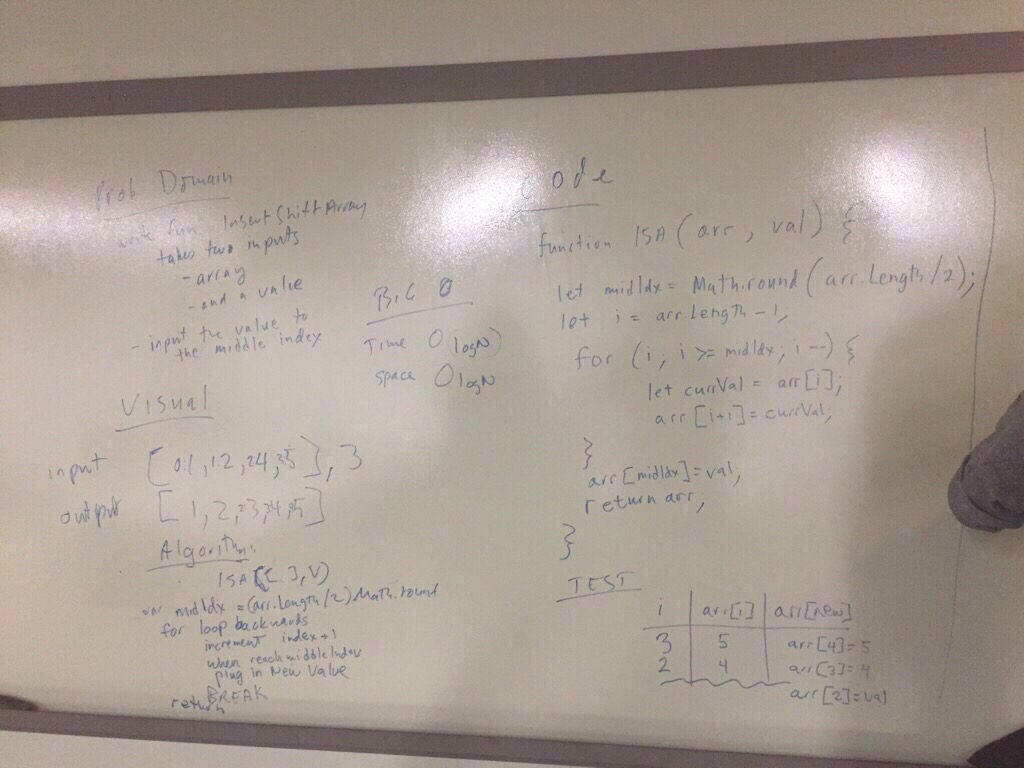 Prob Domain
write fun InsertShiftArray
takes two inputs
- array
- and a value
- input the value to
the middle index
BIG O
Time O logN)
space O logN
Visual
input [0:1, 1:2, 2:4, 3:5], 3
output [1, 2, 2:3, 3:4, 4:5]
Algorithm:
ISA([ ], V)
var midIdx = (arr.Length/2).Math.round
for loop backwards
increment index+1
when reach middle Index
plug in New Value
BREAK
return
Code
function ISA (arr, val) {
let midIdx = Math.round (arr.Length/2);
let i = arr.Length - 1;
for (i, i >= midIdx; i--) {
let currVal = arr[i];
arr[i+1] = currVal;
}
arr[midIdx] = val;
return arr;
}
TEST
i arr[i] arr[new]
3 5 arr[4]=5
2 4 arr[3]=4
arr[2]=val